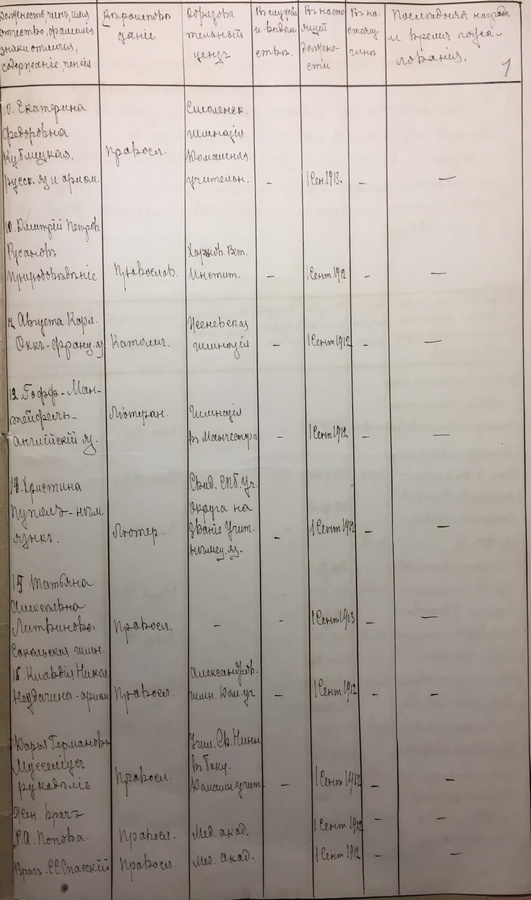 Должность, чинъ, имя, отчество, фамилія, знаки отличія, содержаніе пенсія
Вѣроисповѣданіе
Образовательный цензъ
Въ службѣ
Въ настоящей должности
Последняя награда и время пожалованія.
1
Екатерина Федоровна Кублицкая, русск. яз. и ариѳм.
Правосл.
Смоленск. гимназія Домашняя учительн.
—
1 Сен. 1913.
—
10. Дмитрій Петров. Русановъ Природовѣдѣніе
Православ.
Харьков. Вет. Институт.
—
1 Сент 1912
—
—
Августа Карл. Оккъ - франц. яз
Католич.
Женевская гимназія
—
1 Сент 1912
—
—
12. Гофф-Мантейфель - англійскій яз.
Лютеран.
Гимназія въ Манчестерѣ
—
1 Сент 1912
—
—
Христина нѣм. языкъ.
Лютер.
Свид. СПб. Уч. Округа на званіе Учит. нѣмец. яз.
—
1 Сент 1912
—
—
Татьяна Алексѣевна Литвинова- Сокольская гимн.
Правосл.
—
—
1 Сент 1913
—
—
Клавдія Никол. Неудачина - ариѳм
Правосл.
Александров. гимн. Дом. уч.
—
1 Сент 1912
—
—
Дарья Германовн. Мусселіусъ рукодѣліе
Правосл.
Учил. Св. Нины въ Баку. Домашн. учит.
—
1 Сент 1912
—
—
Жен. врачъ Р.А. Попова.
Правосл.
Мед. акад.
1 Сент 1912
—
—
Врачъ С.Е. Спасскій
Правосл.
Мед. Акад.
1 Сент 1912
—
—